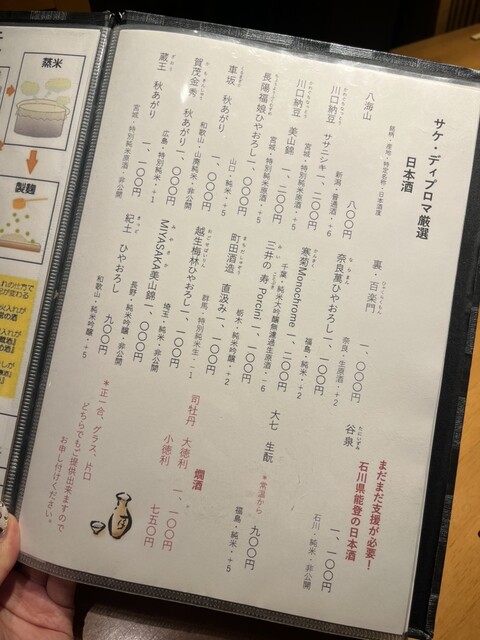 サケ・ディプロマ厳選
日本酒
銘柄・産地・特定名称・日本酒度
八海山 八〇〇円
新潟・普通酒・+6
川口納豆 ササニシキ 一、二〇〇円
宮城・特別純米原酒・+5
川口納豆 美山錦 一、二〇〇円
宮城・特別純米原酒・+5
長陽福娘ひやおろし 一、一〇〇円
山口・純米・+5
車坂 秋あがり 一、〇〇〇円
和歌山・山廃純米・非公開
賀茂金秀 秋あがり 一、〇〇〇円
広島・特別純米・+1
蔵王 秋あがり 一、一〇〇円
宮城・特別純米原酒・非公開
裏・百楽門 一、〇〇〇円
奈良・生原酒・+2
奈良萬ひやおろし 一、一〇〇円
福島・純米・+2
寒菊Monochrome 一、二〇〇円
千葉・純米大吟醸無濾過生原酒・-6
三井の寿 Porcini
栃木・純米吟醸・+2
町田酒造 直汲み
群馬・特別純米生・-1
越生梅林ひやおろし 一、〇〇〇円
埼玉・純米・非公開
MIYASAKA美山錦 一、〇〇〇円
長野・純米吟醸・非公開
紀土 ひやおろし 九〇〇円
和歌山・純米吟醸・+5
まだまだ支援が必要！
石川県能登の日本酒
谷泉 一、一〇〇円
石川・純米・非公開
大七 生酛 九〇〇円
＊常温から
福島・純米・+5
燗酒
司牡丹 大徳利 一、一〇〇円
小徳利 七五〇円
＊正一合、グラス、片口
どちらでもご提供出来ますので
お申し付けください。
蒸米
製麹